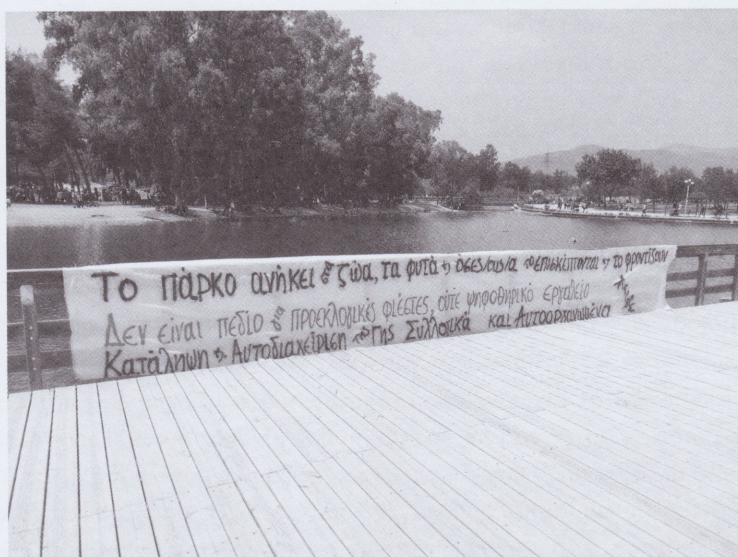 Το πάρκο ανήκει στα ζώα, τα φυτά & όσες/ους/α το επισκέπτονται & το φροντίζουν
Δεν είναι πεδίο για προεκλογικές φιέστες, ούτε ψηφοθηρικό εργαλείο
Κατάληψη & Αυτοδιαχείριση της Γης Συλλογικά και Αυτοοργανωμένα